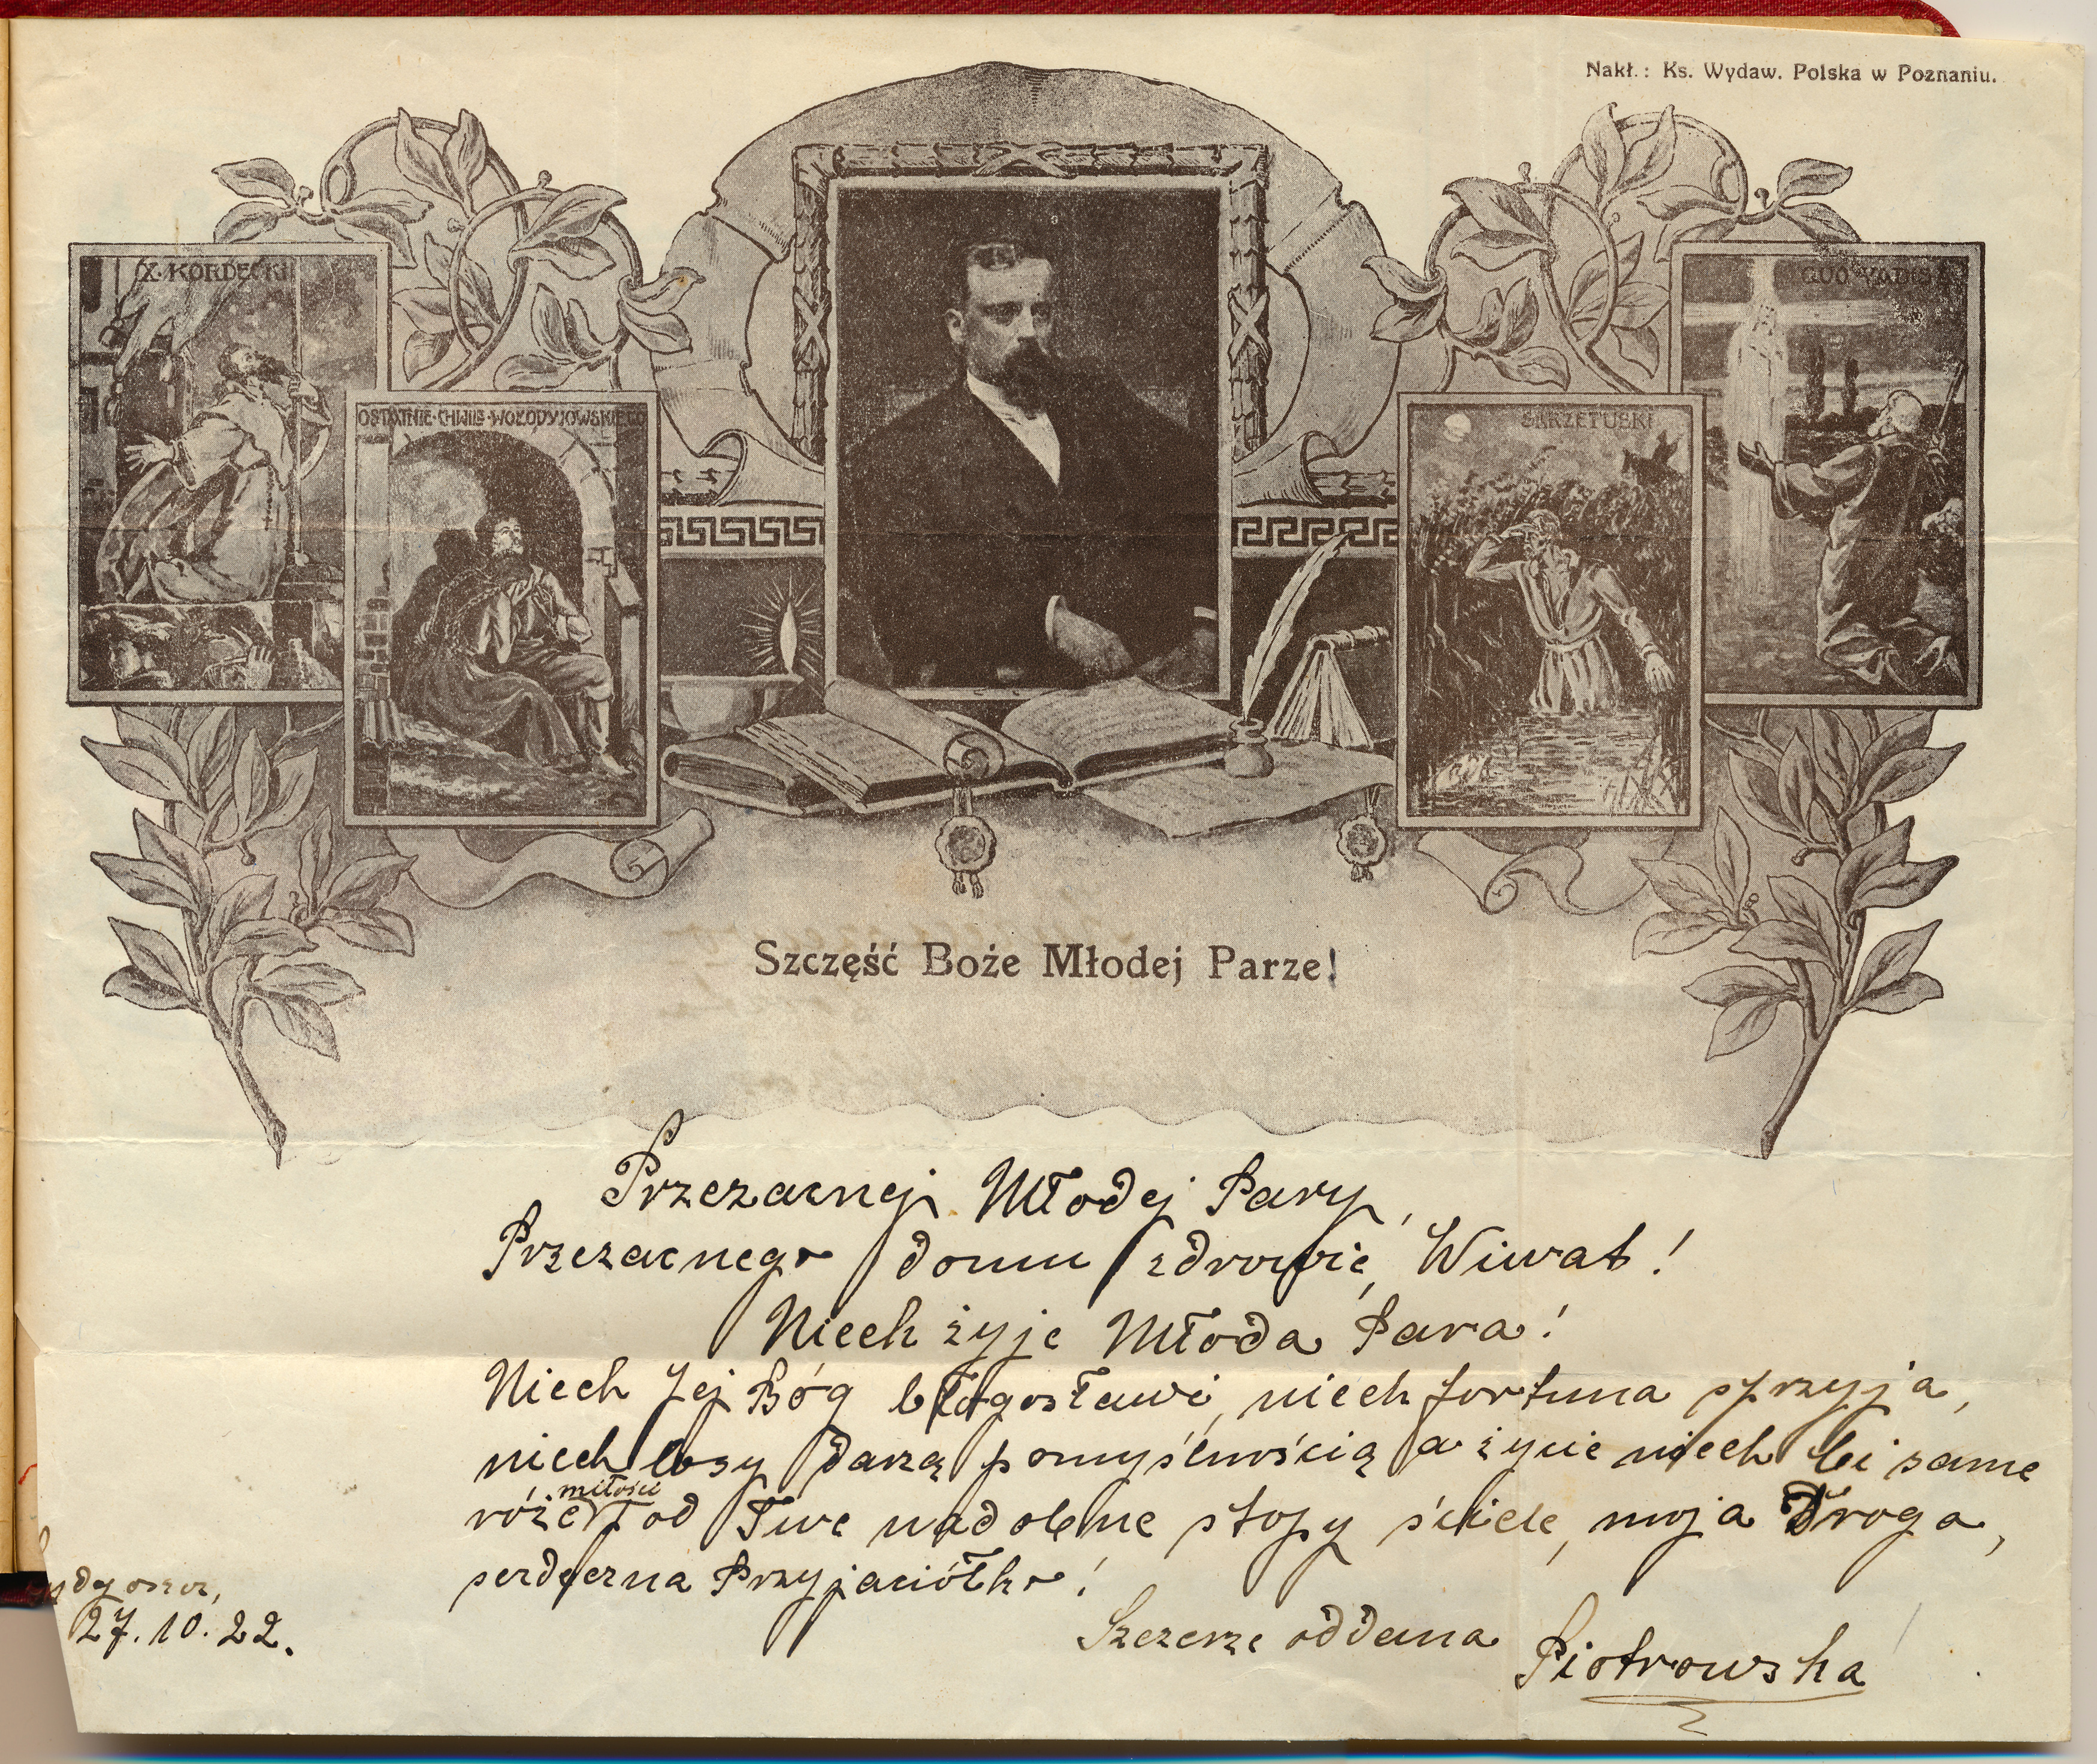 Nakł.: Ks. Wydaw. Polska w Poznaniu.
X. KORDECKI
QUO VADIS
OSTATNIE·CHWILE·WOŁODYJOWSKIEGO
SKRZETUSKI
Szczęść Boże Młodej Parze!
Przezacnej Młodej Pary,
Przezacnego domu zdrowie, Wiwat!
Niech żyje Młoda Para!
Niech Jej Bóg błogosławi, niech fortuna sprzyja,
niech losy darzą pomyślnością a życie niech Ci same
róże miłości pod Twe nadobne stopy ściele, moja Droga,
serdeczna Przyjaciółko!
Szczerze oddana
Piotrowska
27.10.22.